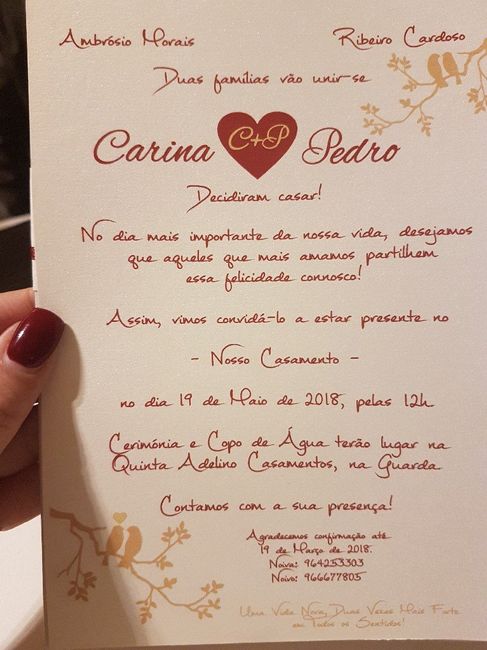 Ambrósio Morais Ribeiro Cardoso
Duas famílias vão unir-se
Carina C+P Pedro
Decidiram casar!
No dia mais importante da nossa vida, desejamos
que aqueles que mais amamos partilhem
essa felicidade connosco!
Assim, vimos convidá-lo a estar presente no
- Nosso Casamento -
no dia 19 de Maio de 2018, pelas 12h
Cerimónia e Copo de Água terão lugar na
Quinta Adelino Casamentos, na Guarda
Contamos com a sua presença!
Agradecemos confirmação até
19 de Março de 2018.
Noiva: 964253303
Noivo: 966677805
Uma Vida Nova, Duas Vezes Mais Forte
em Todos os Sentidos!